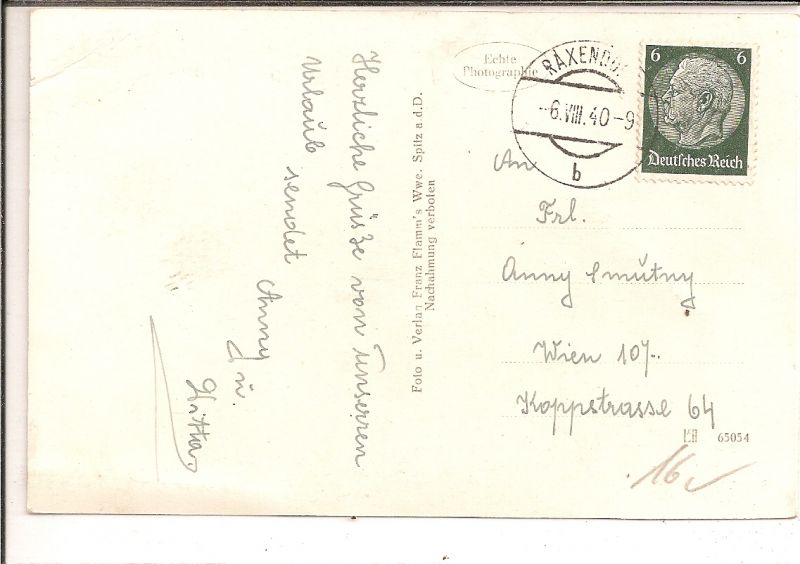 Herzliche Grüße von unserren
Urlaub sendet
Anny
u.
Foto u. Verlag Franz Flamm's Wwe. Spitz a.d.D.
Nachahmung verboten
Echte
Photographie
RAXENDO
-6.VIII.40-9
b
6 6
Deutsches Reich
An
Frl.
Anny Smutny
Wien 107.
Koppstrasse 64
65054
16